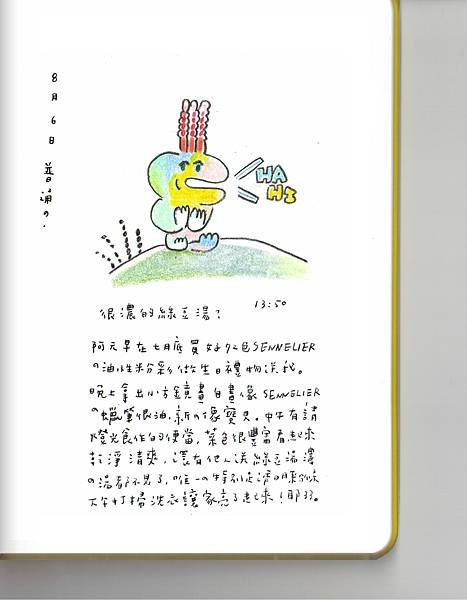 8月6日 普通の.
HA
HI
很濃的綠豆湯? 13:50
阿元早在七月底買好72色SENNELIER
の油性粉彩做生日禮物送我。
晚上拿出小方鏡畫自畫像 SENNELIER
の蠟筆很油,新の像寶貝。中午有請
燈光食作的便當,菜色很豐富看起來
乾淨清爽,還有他人送綠豆湯濃
の湯都不見了,唯一の特別是
下午打掃洗衣讓家亮了起來!耶